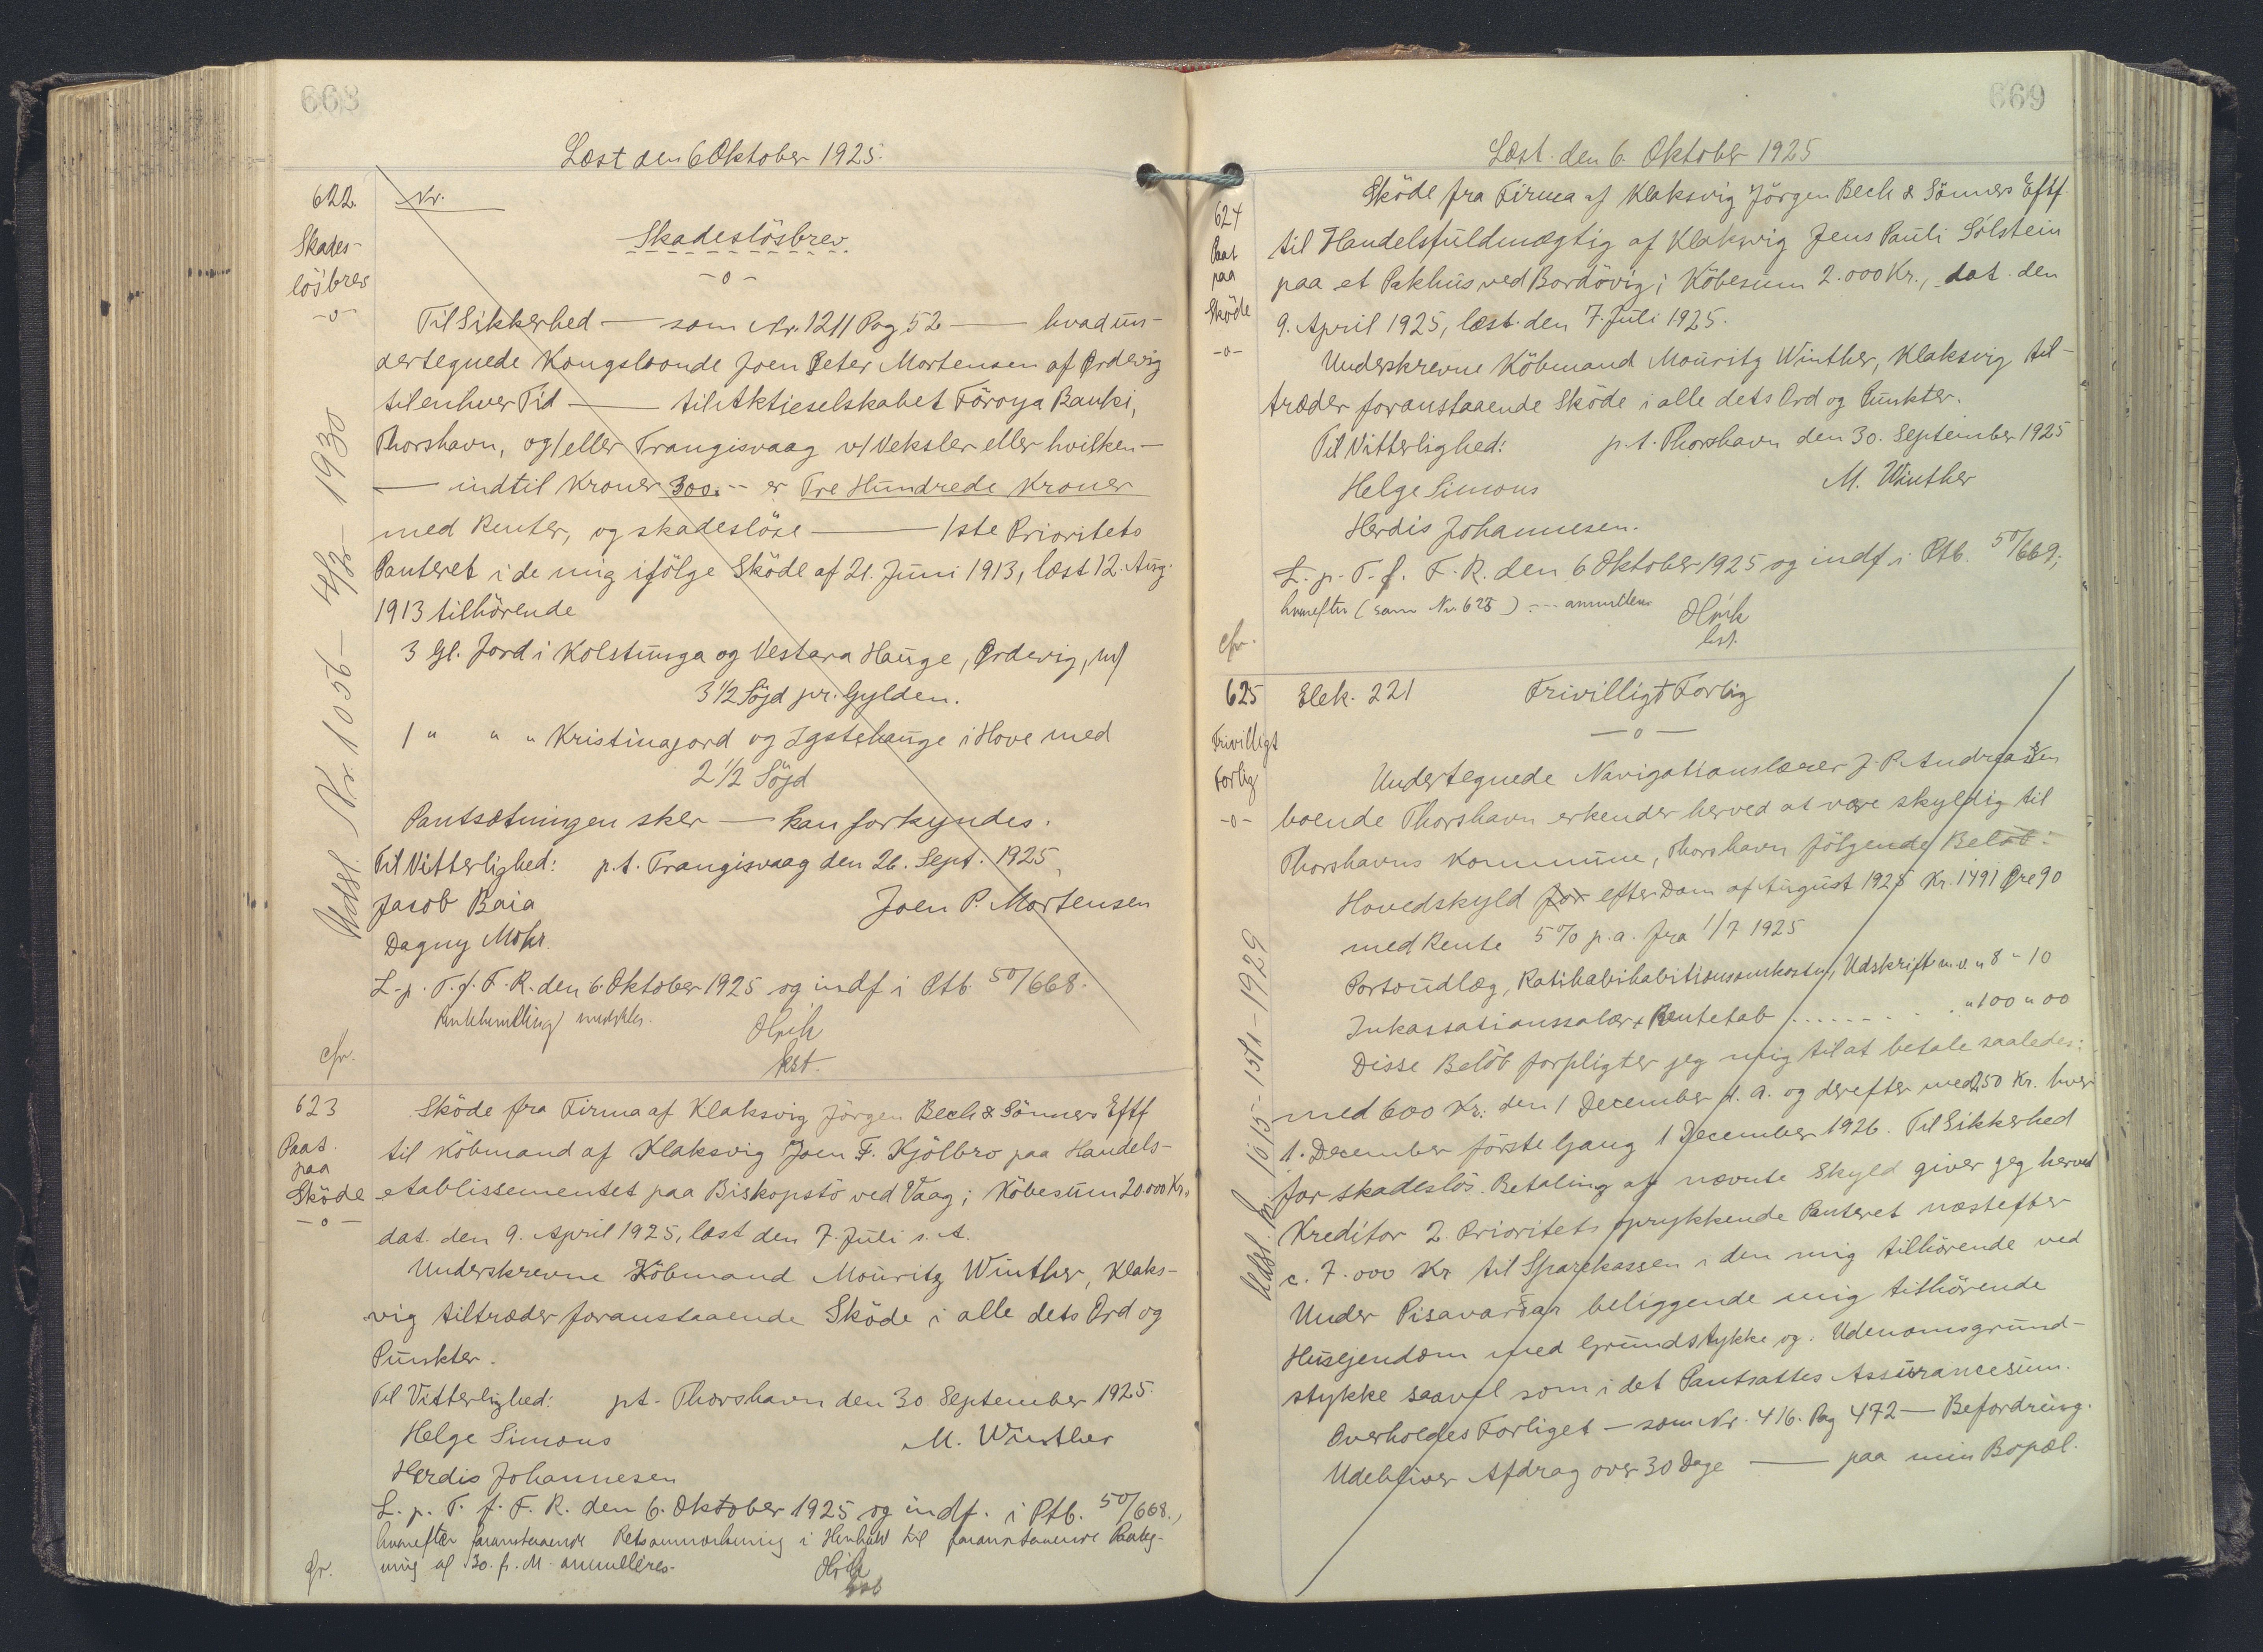 668
Læst den 6 Oktober 1925.
622.
Skades-
lösbrev
-o-
Nr.
Skadeslösbrev.
-o-
Til Sikkerhed — som Nr. 1211 Pag 52 — hvad un-
dertegnede Kongsbonde Joen Peter Mortensen af Ørdevig
til enhver Tid — til Aktieselskabet Föroya Banki,
Thorshavn, og/eller Trangisvaag v/ Veksler eller hvilken —
— indtil Kroner 300.-- er Tre Hundrede Kroner
med Renter, og skadeslöse — 1ste Prioritets
Panteret i de mig ifölge Sköde af 21. Juni 1913, læst 12. Aug.
1913 tilhörende
3 Gl. Jord i Kolstunga og Vestara Hauge, Ørdevig, m/
3 1/2 Söjd pr. Gylden.
1 " " " Kristinajord og Igstehauge i Hove med
2 1/2 Söjd
Pantsætningen sker — kan forkyndes.
Til Vitterlighed: p.t. Trangisvaag den 26. Sept. 1925,
Jacob Baia Joen P. Mortensen
Dagny Mohr.
L. p. T. f. F. R. den 6. Oktober 1925 og indf. i Ptb. 50/668.
kst.
cfr.
Udsl. Nr. 1056 - - 1930
623
Paat.
paa
Sköde
-o-
Sköde fra Firma af Klaksvig Jörgen Bech & Sönners Eftf
til Köbmand af Klaksvig Joen F. Kjölbro paa Handels-
etablissementet paa Biskopstö ved Vaag; Köbesum 20.000 Kr.,
dat. den 9. April 1925, læst den 7. Juli s. A.
Underskrevne Köbmand Mouritz Winther, Klaks-
vig tiltræder foranstaaende Sköde i alle dets Ord og
Punkter.
Til Vitterlighed: p.t. Thorshavn den 30 September 1925.
Helge Simons M. Winther
Herdis Johannesen
L. p. T. f. F. R. den 6. Oktober 1925 og indf. i Ptb. 50/668.,
hvorefter foranstaaende Retsanmærkning i Henhold til foranstaaende Paateg-
ning af annulleres.
cfr.
669
Læst. den 6. Oktober 1925
624
Paat
paa
Sköde
-o-
Sköde fra Firma af Klaksvig Jörgen Bech & Sönners Eftf.
til Handelsfuldmægtig af Klaksvig Jens Pauli Sólstein
paa et Pakhus ved Bordövig; Köbesum 2.000 Kr., dat. den
9. April 1925, læst. den 7. Juli 1925.
Underskrevne Köbmand Mouritz Winther, Klaksvig til-
træder foranstaaende Sköde i alle dets Ord og Punkter.
Til Vitterlighed: p.t. Thorshavn den 30. September 1925
Helge Simons M. Winther
Herdis Johannesen.
L. p. T. f. F. R. den 6 Oktober 1925 og indf. i Ptb. 50/669;
hvorefter (som Nr. 623) --- annulleres
kst.
cfr.
625
Frivilligt
Forlig
-o-
Elek. 221 Frivilligt Forlig
-o-
Undertegnede Navigationslærer J. P. Andreasen
boende Thorshavn erkender herved at være skyldig til
Thorshavns Kommune, Thorshavn fölgende Belöb:
Hovedskyld for efter Dom af August 1925 Kr. 1491 Øre 90
med Rente 5% p.a. fra 1/7 1925
Portoudlæg, Ratihabihabitionsomkostn, Udskrift m.v. " 8 " 10
Inkassationssalær + Rentetab ....... " 100 " 00
Disse Belöb forpligter jeg mig til at betale saaledes:
med 600 Kr. den 1 December d. A. og derefter med 250 Kr. hver
1. December förste Gang 1 December 1926. Til Sikkerhed
for skadeslös Betaling af nævnte Skyld giver jeg herved
Kreditor 2. Prioritets oprykkende Panteret næstefter
c. 7.000 Kr til Sparekassen i den mig tilhörende ved
Under Pisavardar beliggende mig tilhörende
Husejendom med Grundstykke og Udenomsgrund-
stykke saavel som i det Pantsattes Assurancesum.
Overholdes Forliget — som Nr. 416. Pag 472 — Befordring.
Udebliver Afdrag over 30 Dage — paa min Bopæl.
Udsl. 1015 - - 1929